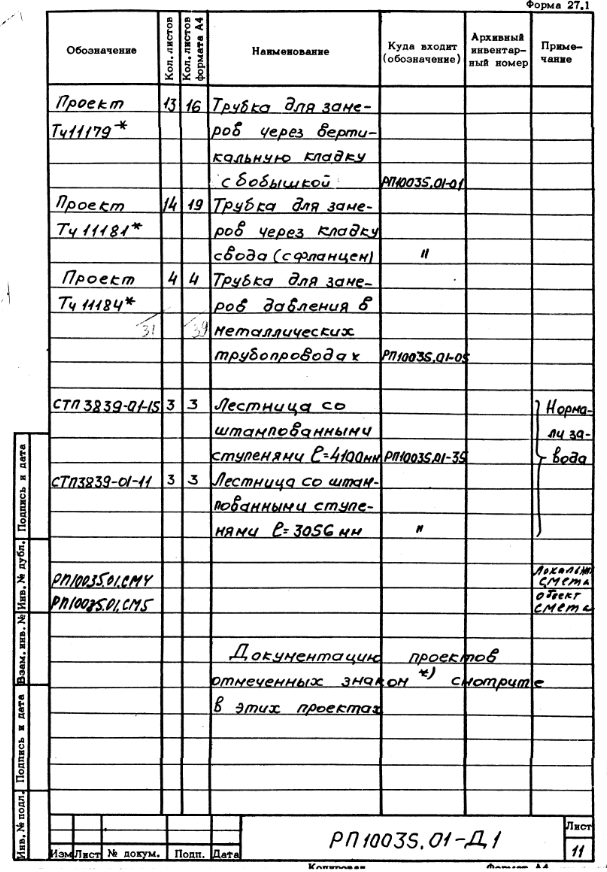 Форма 27.1
Обозначение Кол. листов Кол. листов формата А4 Наименование Куда входит (обозначение) Архивный инвентарный номер Примечание
Проект 13 16 Трубка для заме-
Тч11179* ров через верти-
кальную кладку
с бобышкой РП10035.01-01
Проект 14 19 Трубка для заме-
Тч11181* ров через кладку
свода (с фланцем) "
Проект 4 4 Трубка для заме-
Тч11184* ров давления в
31 39 металлических
трубопроводах РП10035.01-05
СТП3839-01-15 3 3 Лестница со } Норма-
штампованными ли за-
ступенями ℓ=4100мм РП10035.01-35 вода
СТП3839-01-11 3 3 Лестница со штам-
пованными ступе-
нями ℓ=3056 мм "
РП10035.01.СМ4 Локальн смета
РП10035.01.СМ5 объект смета
Документацию проектов
отмеченных знаком *) смотрите
в этих проектах
Инв. № подл. Подпись и дата Взам. инв. № Инв. № дубл. Подпись и дата
РП10035.01-Д1
Лист
11
Изм Лист № докум. Подп. Дата
Копировал Формат А4